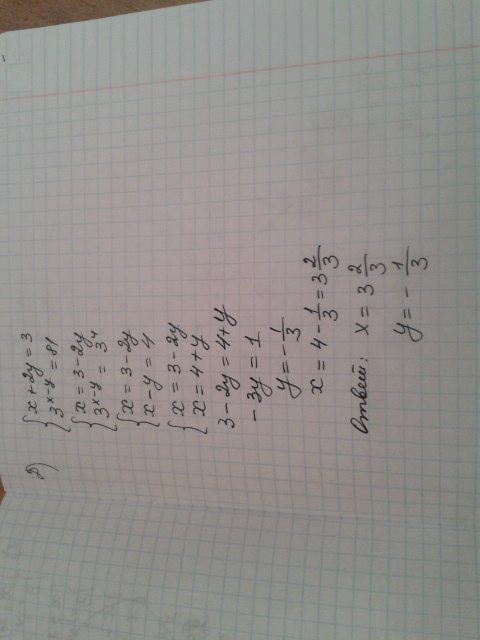 2) { x + 2y = 3
{ 3^{x-y} = 81
{ x = 3 - 2y
{ 3^{x-y} = 3^4
{ x = 3 - 2y
{ x - y = 4
{ x = 3 - 2y
{ x = 4 + y
3 - 2y = 4 + y
- 3y = 1
y = - 1/3
x = 4 - 1/3 = 3 2/3
Ответ: x = 3 2/3
y = - 1/3